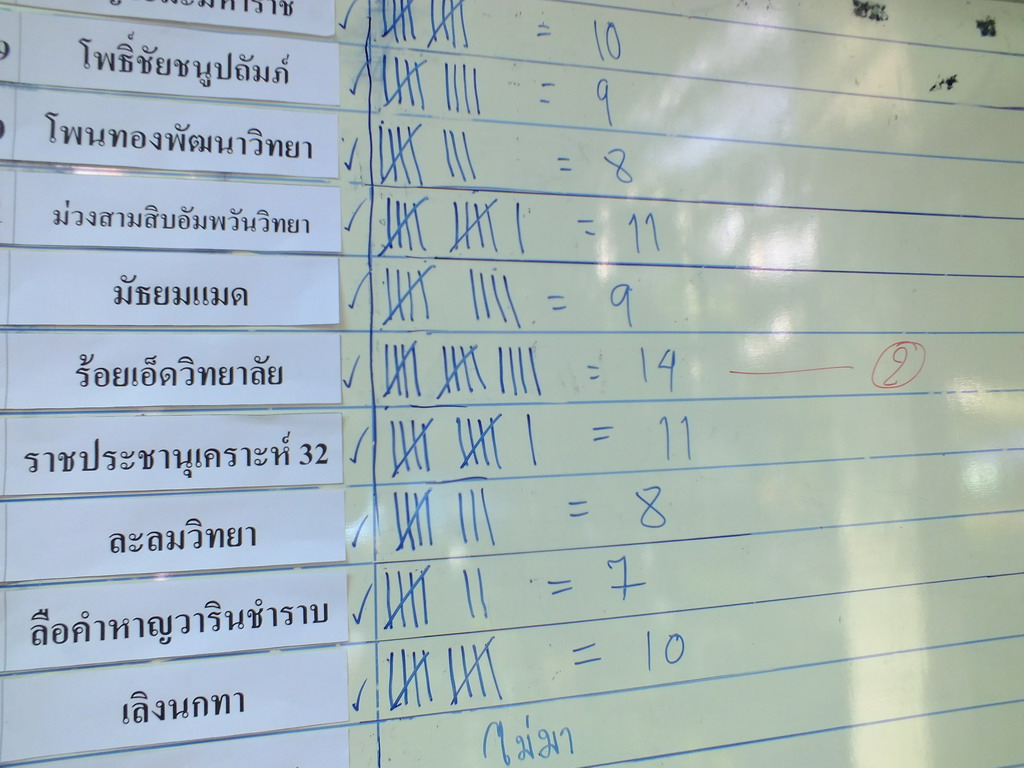 = 10
โพธิ์ชัยชนูปถัมภ์ = 9
โพนทองพัฒนาวิทยา = 8
ม่วงสามสิบอัมพวันวิทยา = 11
มัธยมแมด = 9
ร้อยเอ็ดวิทยาลัย = 14 2
ราชประชานุเคราะห์ 32 = 11
ละลมวิทยา = 8
ลือคำหาญวารินชำราบ = 7
เลิงนกทา = 10
ไม่มา